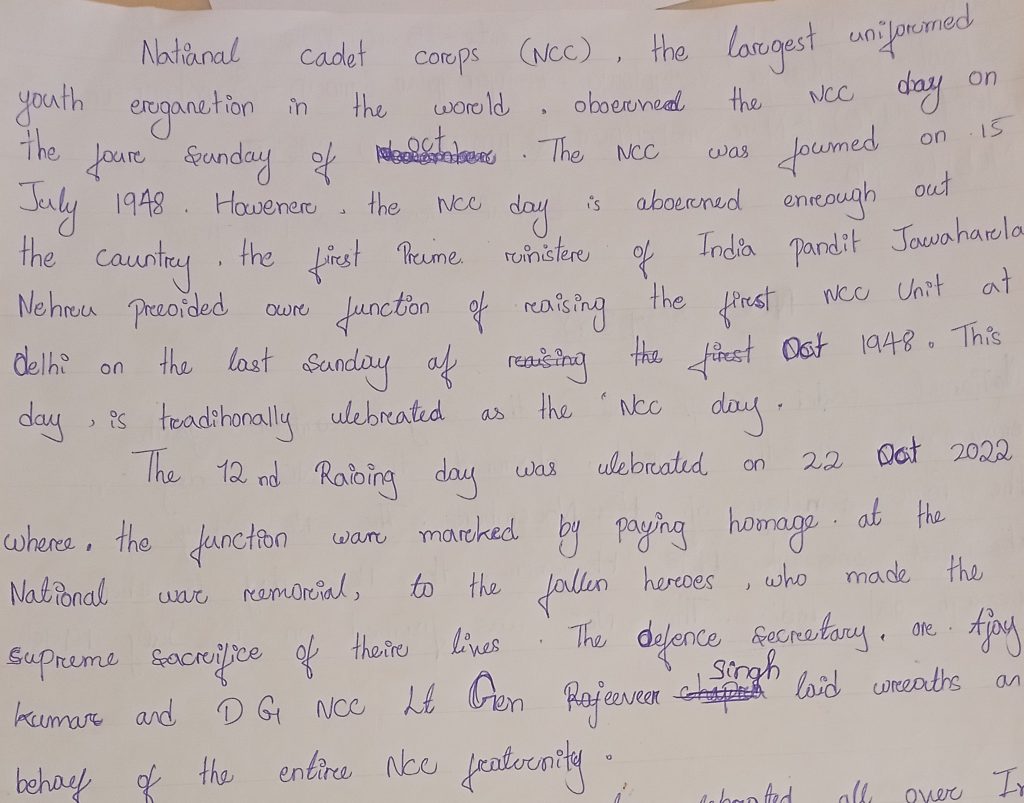 Natianal cadet corps (NCC), the largest uniformed
youth erganetion in the world, oboerened the NCC day on
the foure Sunday of oct. The NCC was foumed on 15
July 1948. Howenere, the NCC day is aboerened enreough out
the cauntrey, the first Preume ruinistere of India Pandit Jawaharela
Nehreu Preeoided owre function of reaising the first NCC Unit at
delhi on the last Sunday af reaising the first Oct 1948. This
day, is treadihonally ulebreated as the 'NCC day.
The 12nd Raioing day was ulebreated on 22 Oct 2022
wheree, the function ware mareked by paying homage. at the
National ware remorcial, to the fallen heroes, who made the
Supreme sacreifice of theire lives. The defence Secreetary, ore. Ajay
kumare and D G NCC Lt Gen Rajeeveer Singh laid wreeaths an
behaef of the entire NCC freatecnity.
all over In